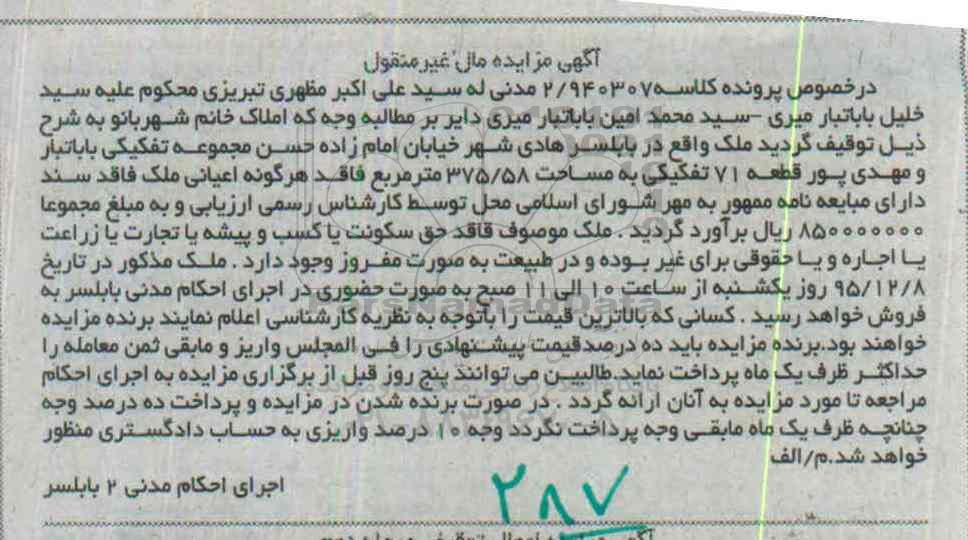 آگهی مزایده مال غیرمنقول
درخصوص پرونده کلاسه ۲/۹۴۰۳۰۷ مدنی له سید علی اکبر مظهری تبریزی محکوم علیه سید
خلیل باباتبار میری -سید محمد امین باباتبار میری دایر بر مطالبه وجه که املاک خانم شهربانو به شرح
ذیل توقیف گردید ملک واقع در بابلسر هادی شهر خیابان امام زاده حسن مجموعه تفکیکی باباتبار
و مهدی پور قطعه ۷۱ تفکیکی به مساحت ۳۷۵/۵۸ مترمربع فاقد هرگونه اعیانی ملک فاقد سند
دارای مبایعه نامه ممهور به مهر شورای اسلامی محل توسط کارشناس رسمی ارزیابی و به مبلغ مجموعا
۸۵۰۰۰۰۰۰۰۰ ریال برآورد گردید . ملک موصوف فاقد حق سکونت یا کسب و پیشه یا تجارت یا زراعت
یا اجاره و یا حقوقی برای غیر بوده و در طبیعت به صورت مفروز وجود دارد . ملک مذکور در تاریخ
۹۵/۱۲/۸ روز یکشنبه از ساعت ۱۰ الی ۱۱ صبح به صورت حضوری در اجرای احکام مدنی بابلسر به
فروش خواهد رسید . کسانی که بالاترین قیمت را باتوجه به نظریه کارشناسی اعلام نمایند برنده مزایده
خواهند بود.برنده مزایده باید ده درصدقیمت پیشنهادی را فی المجلس واریز و مابقی ثمن معامله را
حداکثر ظرف یک ماه پرداخت نماید.طالبین می توانند پنج روز قبل از برگزاری مزایده به اجرای احکام
مراجعه تا مورد مزایده به آنان ارائه گردد . در صورت برنده شدن در مزایده و پرداخت ده درصد وجه
چنانچه ظرف یک ماه مابقی وجه پرداخت نگردد وجه ۱۰ درصد واریزی به حساب دادگستری منظور
خواهد شد.م/الف
۲۸۷
اجرای احکام مدنی ۲ بابلسر